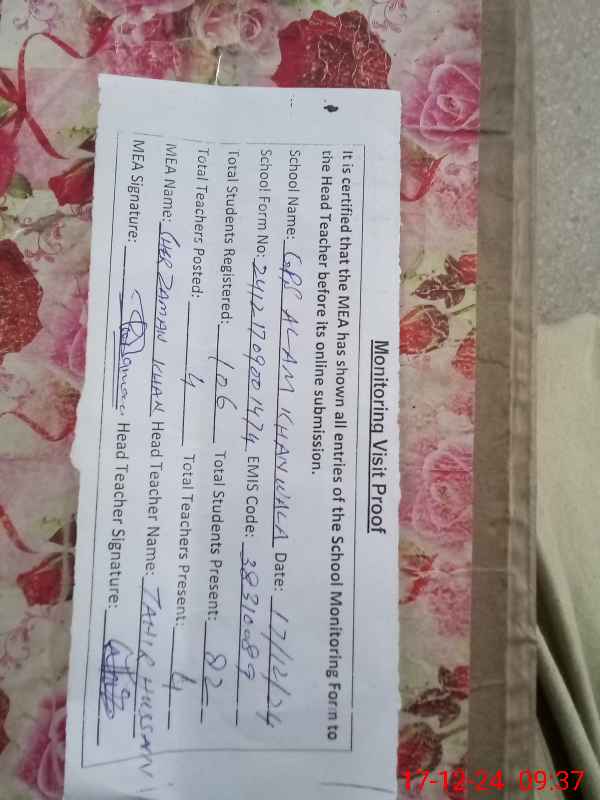 Monitoring Visit Proof
It is certified that the MEA has shown all entries of the School Monitoring Form to
the Head Teacher before its online submission.
School Name: GPS ALAM KHAN WALA Date: 17/12/24
School Form No: 24121709001474 EMIS Code: 38310089
Total Students Registered: 106 Total Students Present: 82
Total Teachers Posted: 4 Total Teachers Present: 4
MEA Name: SHER ZAMAN KHAN Head Teacher Name: TAHIR HUSSAIN
MEA Signature: Head Teacher Signature:
17-12-24 09:37